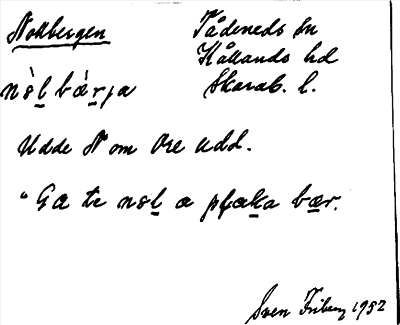 Nollbergen
Tådeneds sn
Kållands hd
Skarab. l.
nòl bær̀ja
Udde N om Ore udd.
"Ga te nol a plæka bær.
Sven Friberg 1952